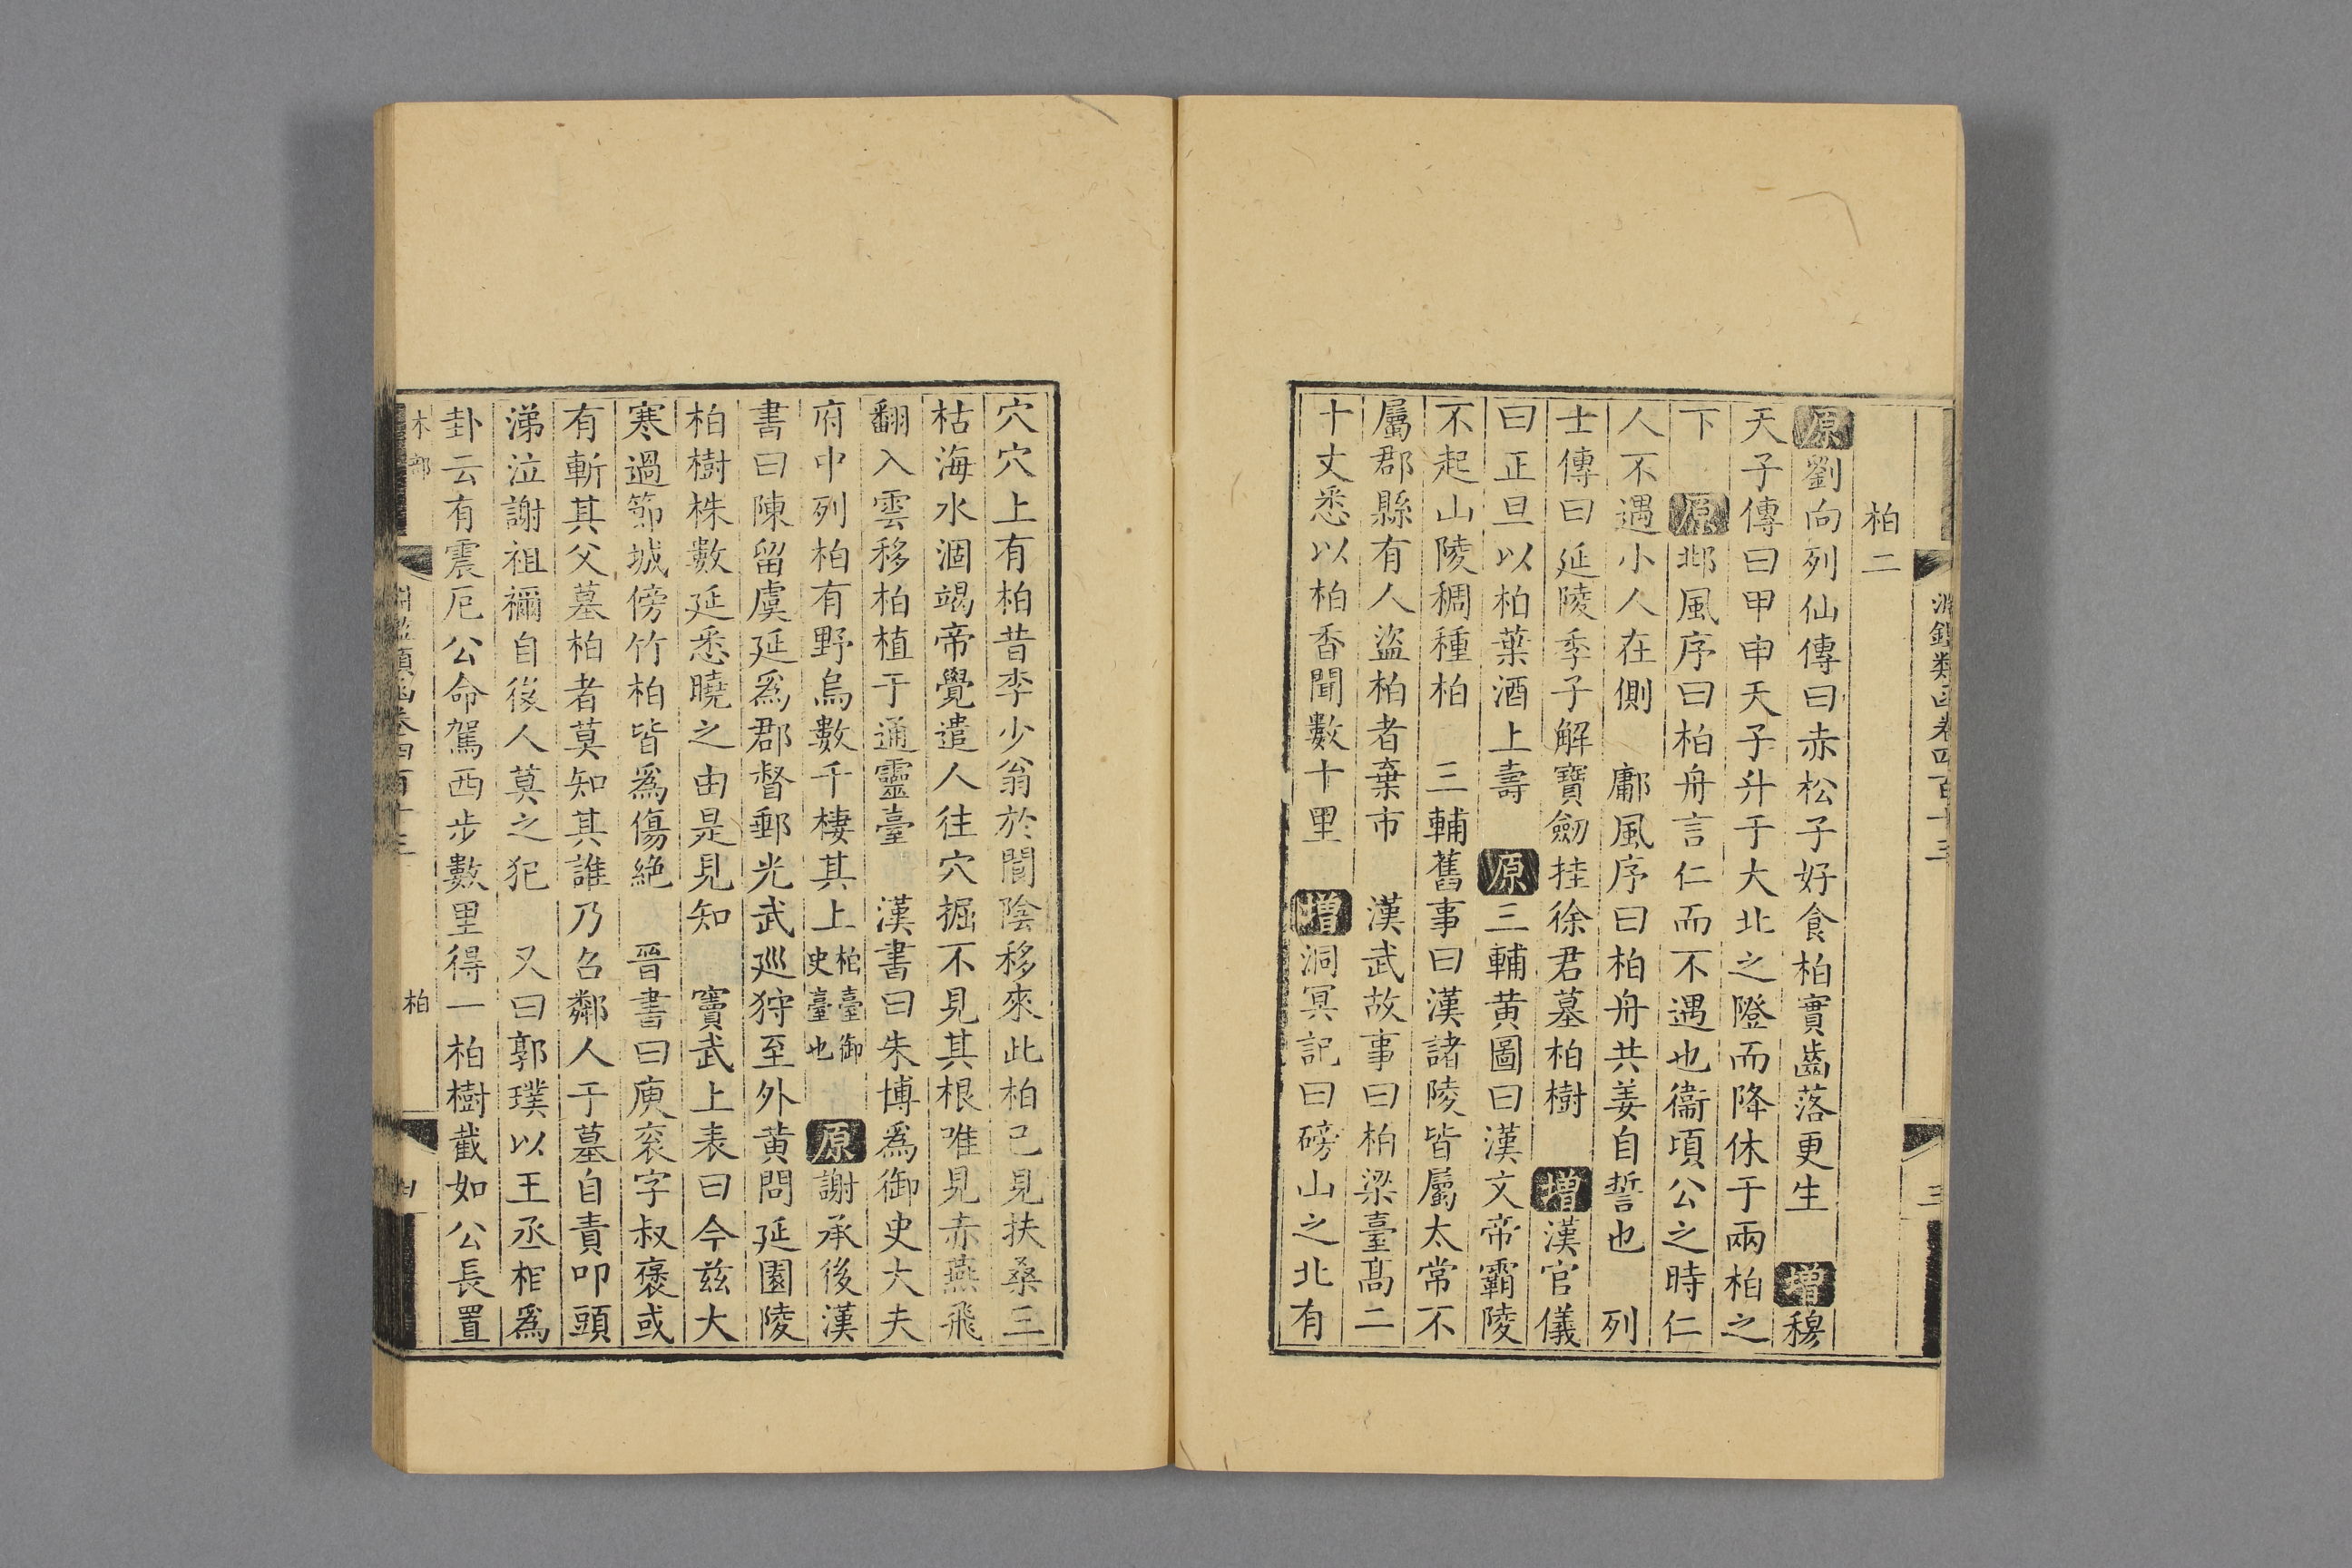 淵鑑類函卷四百十三
三
柏二
原劉向列仙傳曰赤松子好食柏實齒落更生 增穆
天子傳曰甲申天子升于大北之隥而降休于兩柏之
下 原邶風序曰柏舟言仁而不遇也衞頃公之時仁
人不遇小人在側 鄘風序曰柏舟共姜自誓也 列
士傳曰延陵季子解寶劒挂徐君墓柏樹 增漢官儀
曰正旦以柏葉酒上壽 原三輔黄圖曰漢文帝霸陵
不起山陵稠種柏 三輔舊事曰漢諸陵皆屬太常不
屬郡縣有人盜柏者棄市 漢武故事曰柏梁臺髙二
十丈悉以柏香聞數十里 增洞冥記曰磅山之北有
穴穴上有柏昔李少翁於閬陰移來此柏已見扶桑三
枯海水涸竭帝覺遣人往穴掘不見其根唯見赤燕飛
翻入雲移柏植于通靈臺 漢書曰朱博爲御史大夫
府中列柏有野烏數千棲其上柏臺御史臺也 原謝承後漢
書曰陳留虞延爲郡督郵光武廵狩至外黄問延園陵
柏樹株數延悉曉之由是見知 竇武上表曰今兹大
寒過節城傍竹柏皆爲傷絶 晉書曰庾衮字叔褒或
有斬其父墓柏者莫知其誰乃召鄰人于墓自責叩頭
涕泣謝祖禰自後人莫之犯 又曰郭璞以王丞相爲
卦云有震厄公命駕西步數里得一柏樹截如公長置
木部
淵鑑類函卷四百十三
柏
四